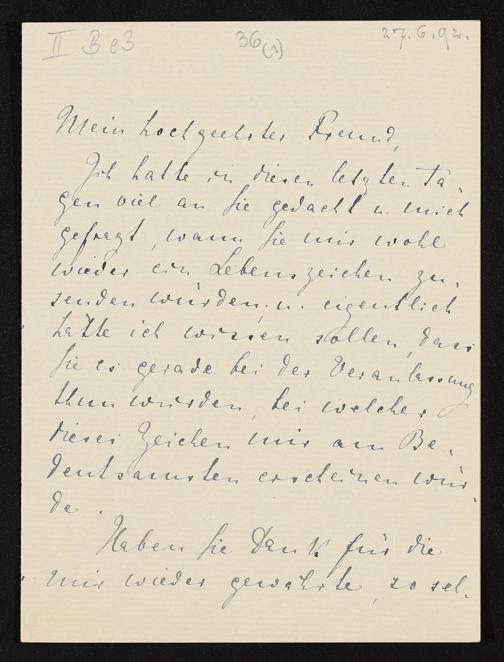 II B e 3
36(1)
27.6.92.
Mein hochgeehrter Freund,
Ich hatte in diesen letzten Ta-
gen viel an Sie gedacht u. mich
gefragt, wann Sie mir wohl
wieder ein Lebenszeichen zu-
senden würden, u. eigentlich
hätte ich wissen sollen, dass
Sie es gerade bei der Veranlassung
thun würden, bei welcher
dieses Zeichen mir am Be-
deutsamsten erscheinen wür-
de.
Haben Sie Dank für die
mir wieder gewährte, so sel-